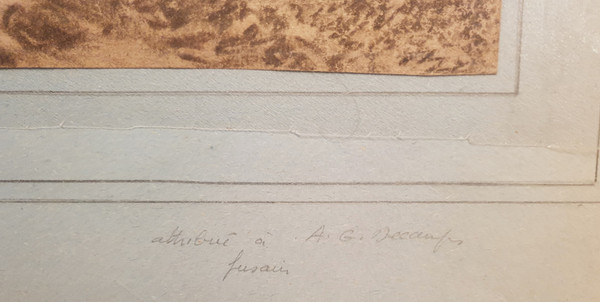 attribué à A. G. Decamps
fusain